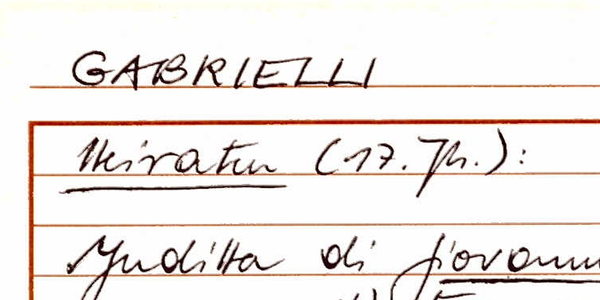 GABRIELLI
Heiraten (17. Jh.):
Juditta di Giovanni